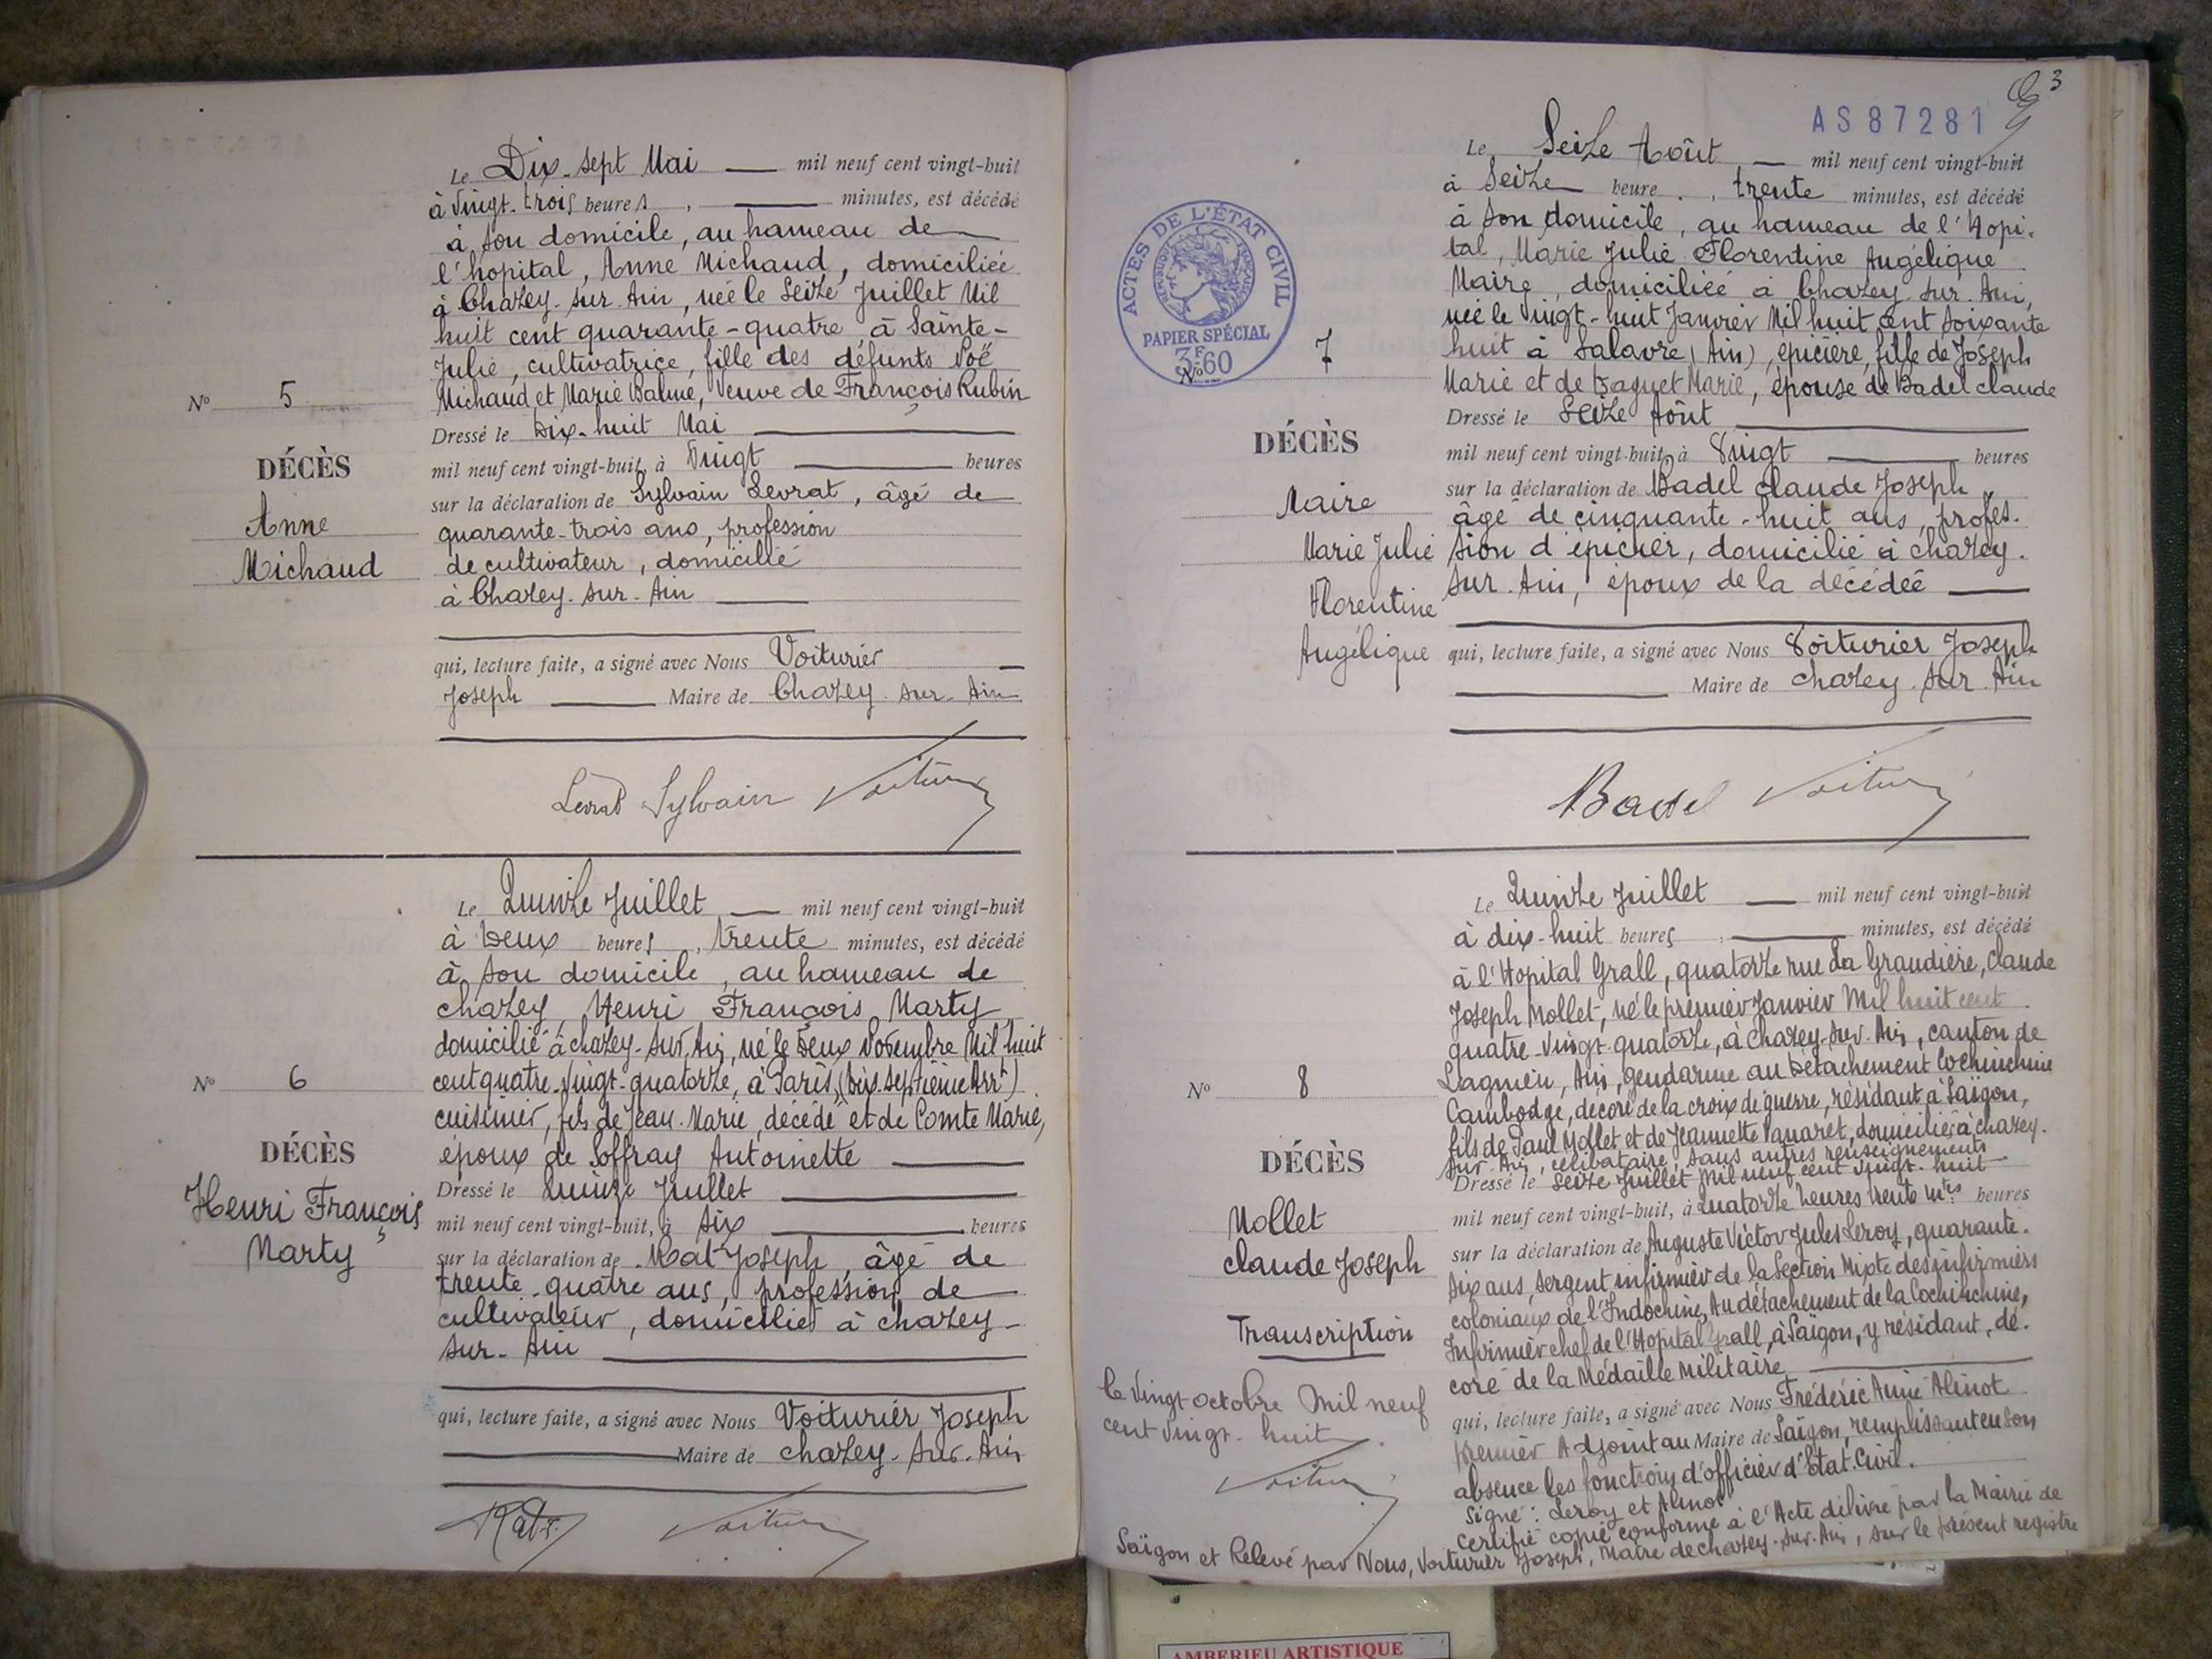 Le Dix-sept Mai — mil neuf cent vingt-huit
à Vingt-trois heures, — minutes, est décédé
à son domicile, au hameau de
l'hopital, Anne Michaud, domiciliée
à Chazey-sur-Ain, née le Seize Juillet Mil
huit cent quarante-quatre à Sainte-
Julie, cultivatrice, fille des défunts Noë
Michaud et Marie Balme, Veuve de François Rubin
N° 5
Dressé le Dix-huit Mai
DÉCÈS
mil neuf cent vingt-huit, à Vingt heures
sur la déclaration de Sylvain Levrat, âgé de
Anne
quarante-trois ans, profession
Michaud
de cultivateur, domicilié
à Chazey-sur-Ain
qui, lecture faite, a signé avec Nous Voiturier
Joseph — Maire de Chazey-sur-Ain
Levrat Sylvain Voiturier
Le Quinze Juillet — mil neuf cent vingt-huit
à Deux heures, trente minutes, est décédé
à son domicile, au hameau de
chazey, Henri François Marty
domicilié à chazey-sur-Ain, né le Deux Novembre Mil huit
N° 6
cent quatre-Vingt-quatorze, à Paris, (Dix-septième Arrt)
cuisinier, fils de Jean-Marie, décédé et de Comte Marie,
DÉCÈS
époux de Soffray Antoinette
Henri François
Dressé le Quinze Juillet
Marty
mil neuf cent vingt-huit, à six heures
sur la déclaration de Rat Joseph, âgé de
trente-quatre ans, profession de
cultivateur, domicilié à chazey-
sur-Ain
qui, lecture faite, a signé avec Nous Voiturier Joseph
Maire de chazey-sur-Ain
Rat J. Voiturier
3
AS87281
Le Seize Août — mil neuf cent vingt-huit
à Seize heure., trente minutes, est décédé
à son domicile, au hameau de l'Hopi-
tal, Marie Julie Florentine Angélique
Maire, domiciliée à Chazey-sur-Ain,
née le Vingt-huit Janvier Mil huit cent soixante
huit à Salavre (Ain), épicière, fille de Joseph
Marie et de Baguet Marie, épouse de Badel Claude
ACTES DE L'ÉTAT CIVIL
PAPIER SPÉCIAL
3F60
N° 7
Dressé le Seize Août
DÉCÈS
mil neuf cent vingt-huit, à Vingt heures
Maire
sur la déclaration de Badel Claude Joseph
âgé de cinquante-huit ans, profes-
Marie Julie
sion d'épicier, domicilié à chazey-
Florentine
sur-Ain, époux de la décédée
Angélique
qui, lecture faite, a signé avec Nous Voiturier Joseph
Maire de chazey-sur-Ain
Badel Voiturier
Le Quinze Juillet — mil neuf cent vingt-huit
à dix-huit heures, — minutes, est décédé
à l'Hopital Grall, quatorze rue La Grandière, Claude
Joseph Mollet, né le premier Janvier Mil huit cent
quatre-Vingt-quatorze, à Chazey-sur-Ain, canton de
N° 8
Lagnieu, Ain, gendarme au Détachement Cochinchine
Cambodge, décoré de la croix de guerre, résidant à Saïgon,
fils de Paul Mollet et de Jeannette Panaret, domiciliés à chazey-
DÉCÈS
sur-Ain, célibataire, sans autres renseignements
Dressé le Seize Juillet Mil neuf cent Vingt-huit
Mollet
mil neuf cent vingt-huit, à Quatorze heures trente mtes heures
Claude Joseph
sur la déclaration de Auguste Victor Jules Leroy, quarante-
six ans, sergent infirmier de la Section Mixte des infirmiers
Transcription
coloniaux de l'Indochine, Au détachement de la Cochinchine,
Infirmier chef de l'Hopital Grall, à Saïgon, y résidant, dé-
coré de la Médaille Militaire
le Vingt octobre Mil neuf
cent Vingt-huit
Voiturier
qui, lecture faite, a signé avec Nous Frédéric Aimé Alinot
premier Adjoint au Maire de Saïgon, remplissant en son
absence les fonctions d'officier d'Etat-Civil.
Signé : Leroy et Alinot
Certifié copie conforme à l'Acte délivré par la Mairie de
Saïgon et Relevé par Nous, Voiturier Joseph, Maire de chazey-sur-Ain, sur le présent registre
AMBERIEU ARTISTIQUE